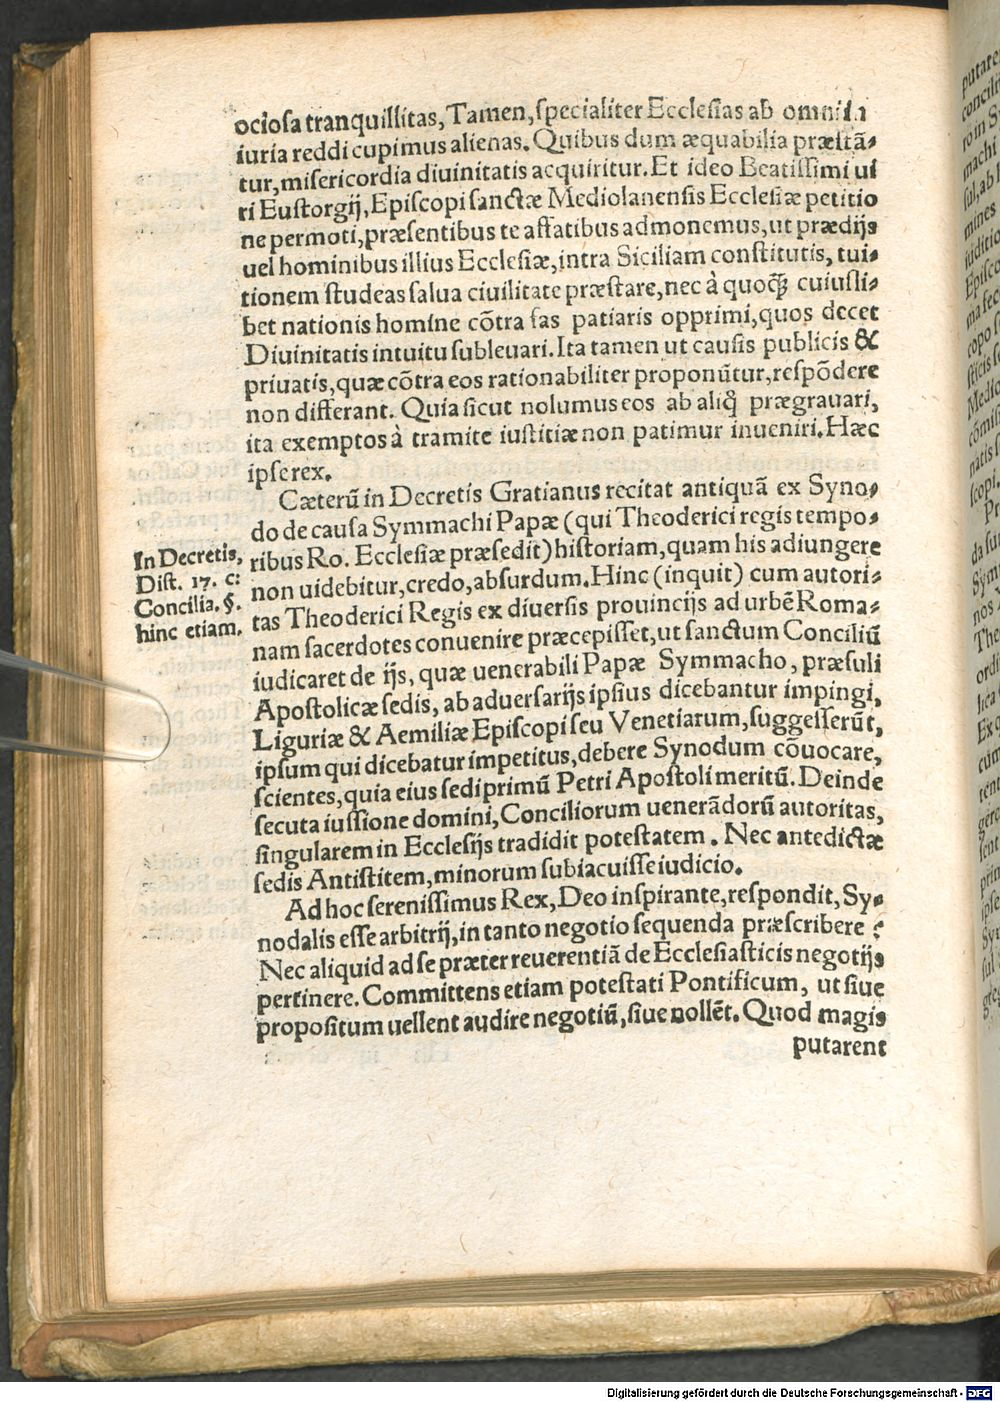 ociosa tranquillitas, Tamen, specialiter Ecclesias ab omni in
iuria reddi cupimus alienas. Quibus dum æquabilia præstã-
tur, misericordia diuinitatis acquiritur. Et ideo Beatissimi ui
ri Eustorgij, Episcopi sanctæ Mediolanensis Ecclesiæ petitio
ne permoti, præsentibus te affatibus admonemus, ut prædijs
uel hominibus illius Ecclesiæ, intra Siciliam constitutis, tui-
tionem studeas salua ciuilitate præstare, nec à quoq̃ cuiusli-
bet nationis homine cõtra fas patiaris opprimi, quos decet
Diuinitatis intuitu subleuari. Ita tamen ut causis publicis &
priuatis, quæ cõtra eos rationabiliter proponũtur, respõdere
non differant. Quia sicut nolumus eos ab aliq̃ prægrauari,
ita exemptos à tramite iustitiæ non patimur inueniri. Hæc
ipse rex.
Cæterũ in Decretis Gratianus recitat antiquã ex Syno-
do de causa Symmachi Papæ (qui Theoderici regis tempo-
ribus Ro. Ecclesiæ præsedit) historiam, quam his adiungere
non uidebitur, credo, absurdum. Hinc (inquit) cum autori-
tas Theoderici Regis ex diuersis prouincijs ad urbẽ Roma-
nam sacerdotes conuenire præcepisset, ut sanctum Conciliũ
iudicaret de ijs, quæ uenerabili Papæ Symmacho, præsuli
Apostolicæ sedis, ab aduersarijs ipsius dicebantur impingi,
Liguriæ & Aemiliæ Episcopi seu Venetiarum, suggesserũt,
ipsum qui dicebatur impetitus, debere Synodum cõuocare,
scientes, quia eius sedi primũ Petri Apostoli meritũ. Deinde
secuta iussione domini, Conciliorum uenerãdorũ autoritas,
singularem in Ecclesijs tradidit potestatem. Nec antedictæ
sedis Antistitem, minorum subiacuisse iudicio.
Ad hoc serenissimus Rex, Deo inspirante, respondit, Sy-
nodalis esse arbitrij, in tanto negotio sequenda præscribere:
Nec aliquid ad se præter reuerentiã de Ecclesiasticis negotijs
pertinere. Committens etiam potestati Pontificum, ut siue
propositum uellent audire negotiũ, siue nollẽt. Quod magis
putarent
In Decretis,
Dist. 17. c:
Concilia. §.
hinc etiam.
Digitalisierung gefördert durch die Deutsche Forschungsgemeinschaft - DFG